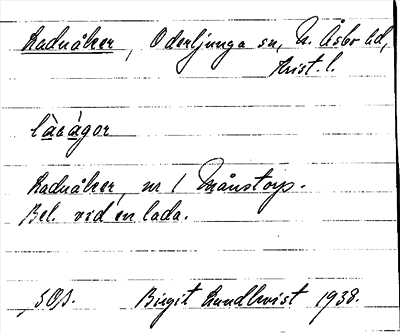 Laduåker, Oderljunga sn, N. Åsbo hd,
Krist. l.
Laduåker, nr 1 Månstorp.
Bel. vid en lada.
Birgit Lundkvist 1938.